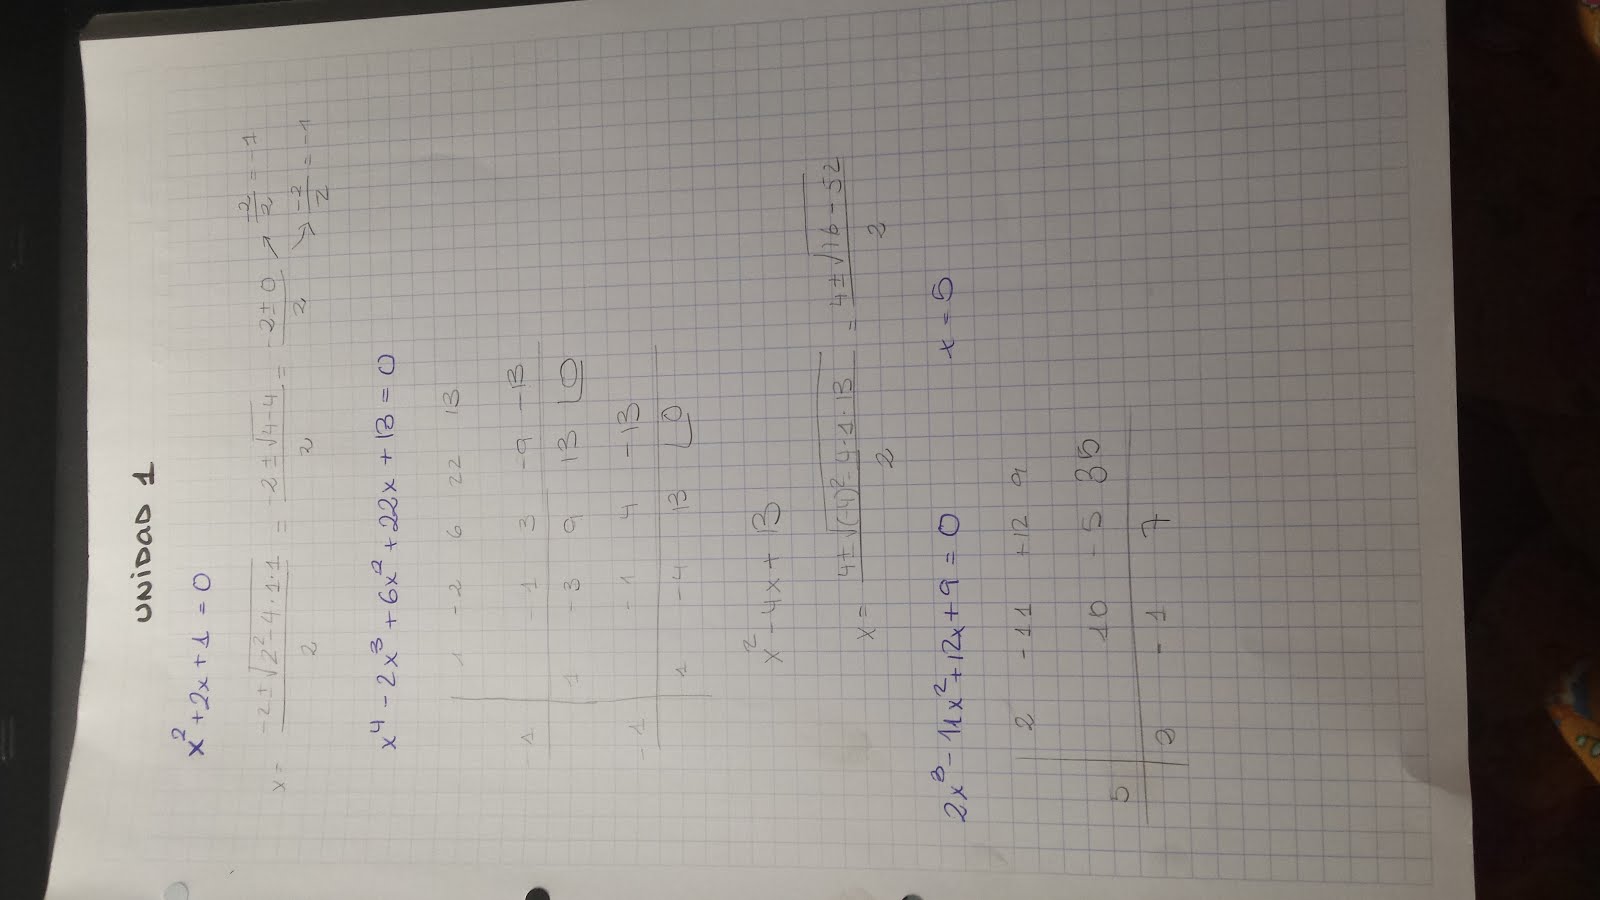 UNIDAD 1
x² + 2x + 1 = 0
x = (-2 ± √(2² - 4 · 1 · 1))/2 = (-2 ± √(4 - 4))/2 = (-2 ± 0)/2 ↗ -2/2 = -1
↘ -2/2 = -1
x⁴ - 2x³ + 6x² + 22x + 13 = 0
1 -2 6 22 13
-1 -1 3 -9 -13
1 -3 9 13 0
-1 -1 4 -13
1 -4 13 0
x² - 4x + 13
x = (4 ± √((4)² - 4 · 1 · 13))/2 = (4 ± √(16 - 52))/2
2x³ - 11x² + 12x + 9 = 0 x = 5
2 -11 +12 9
5 10 -5 35
2 -1 7